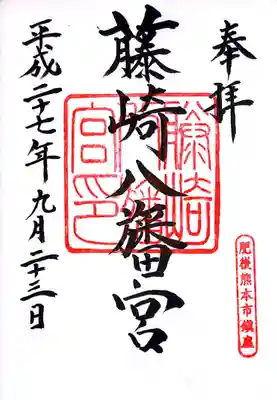 奉拝
藤崎八旛宮
平成二十七年九月二十三日
肥後熊本市鎮座